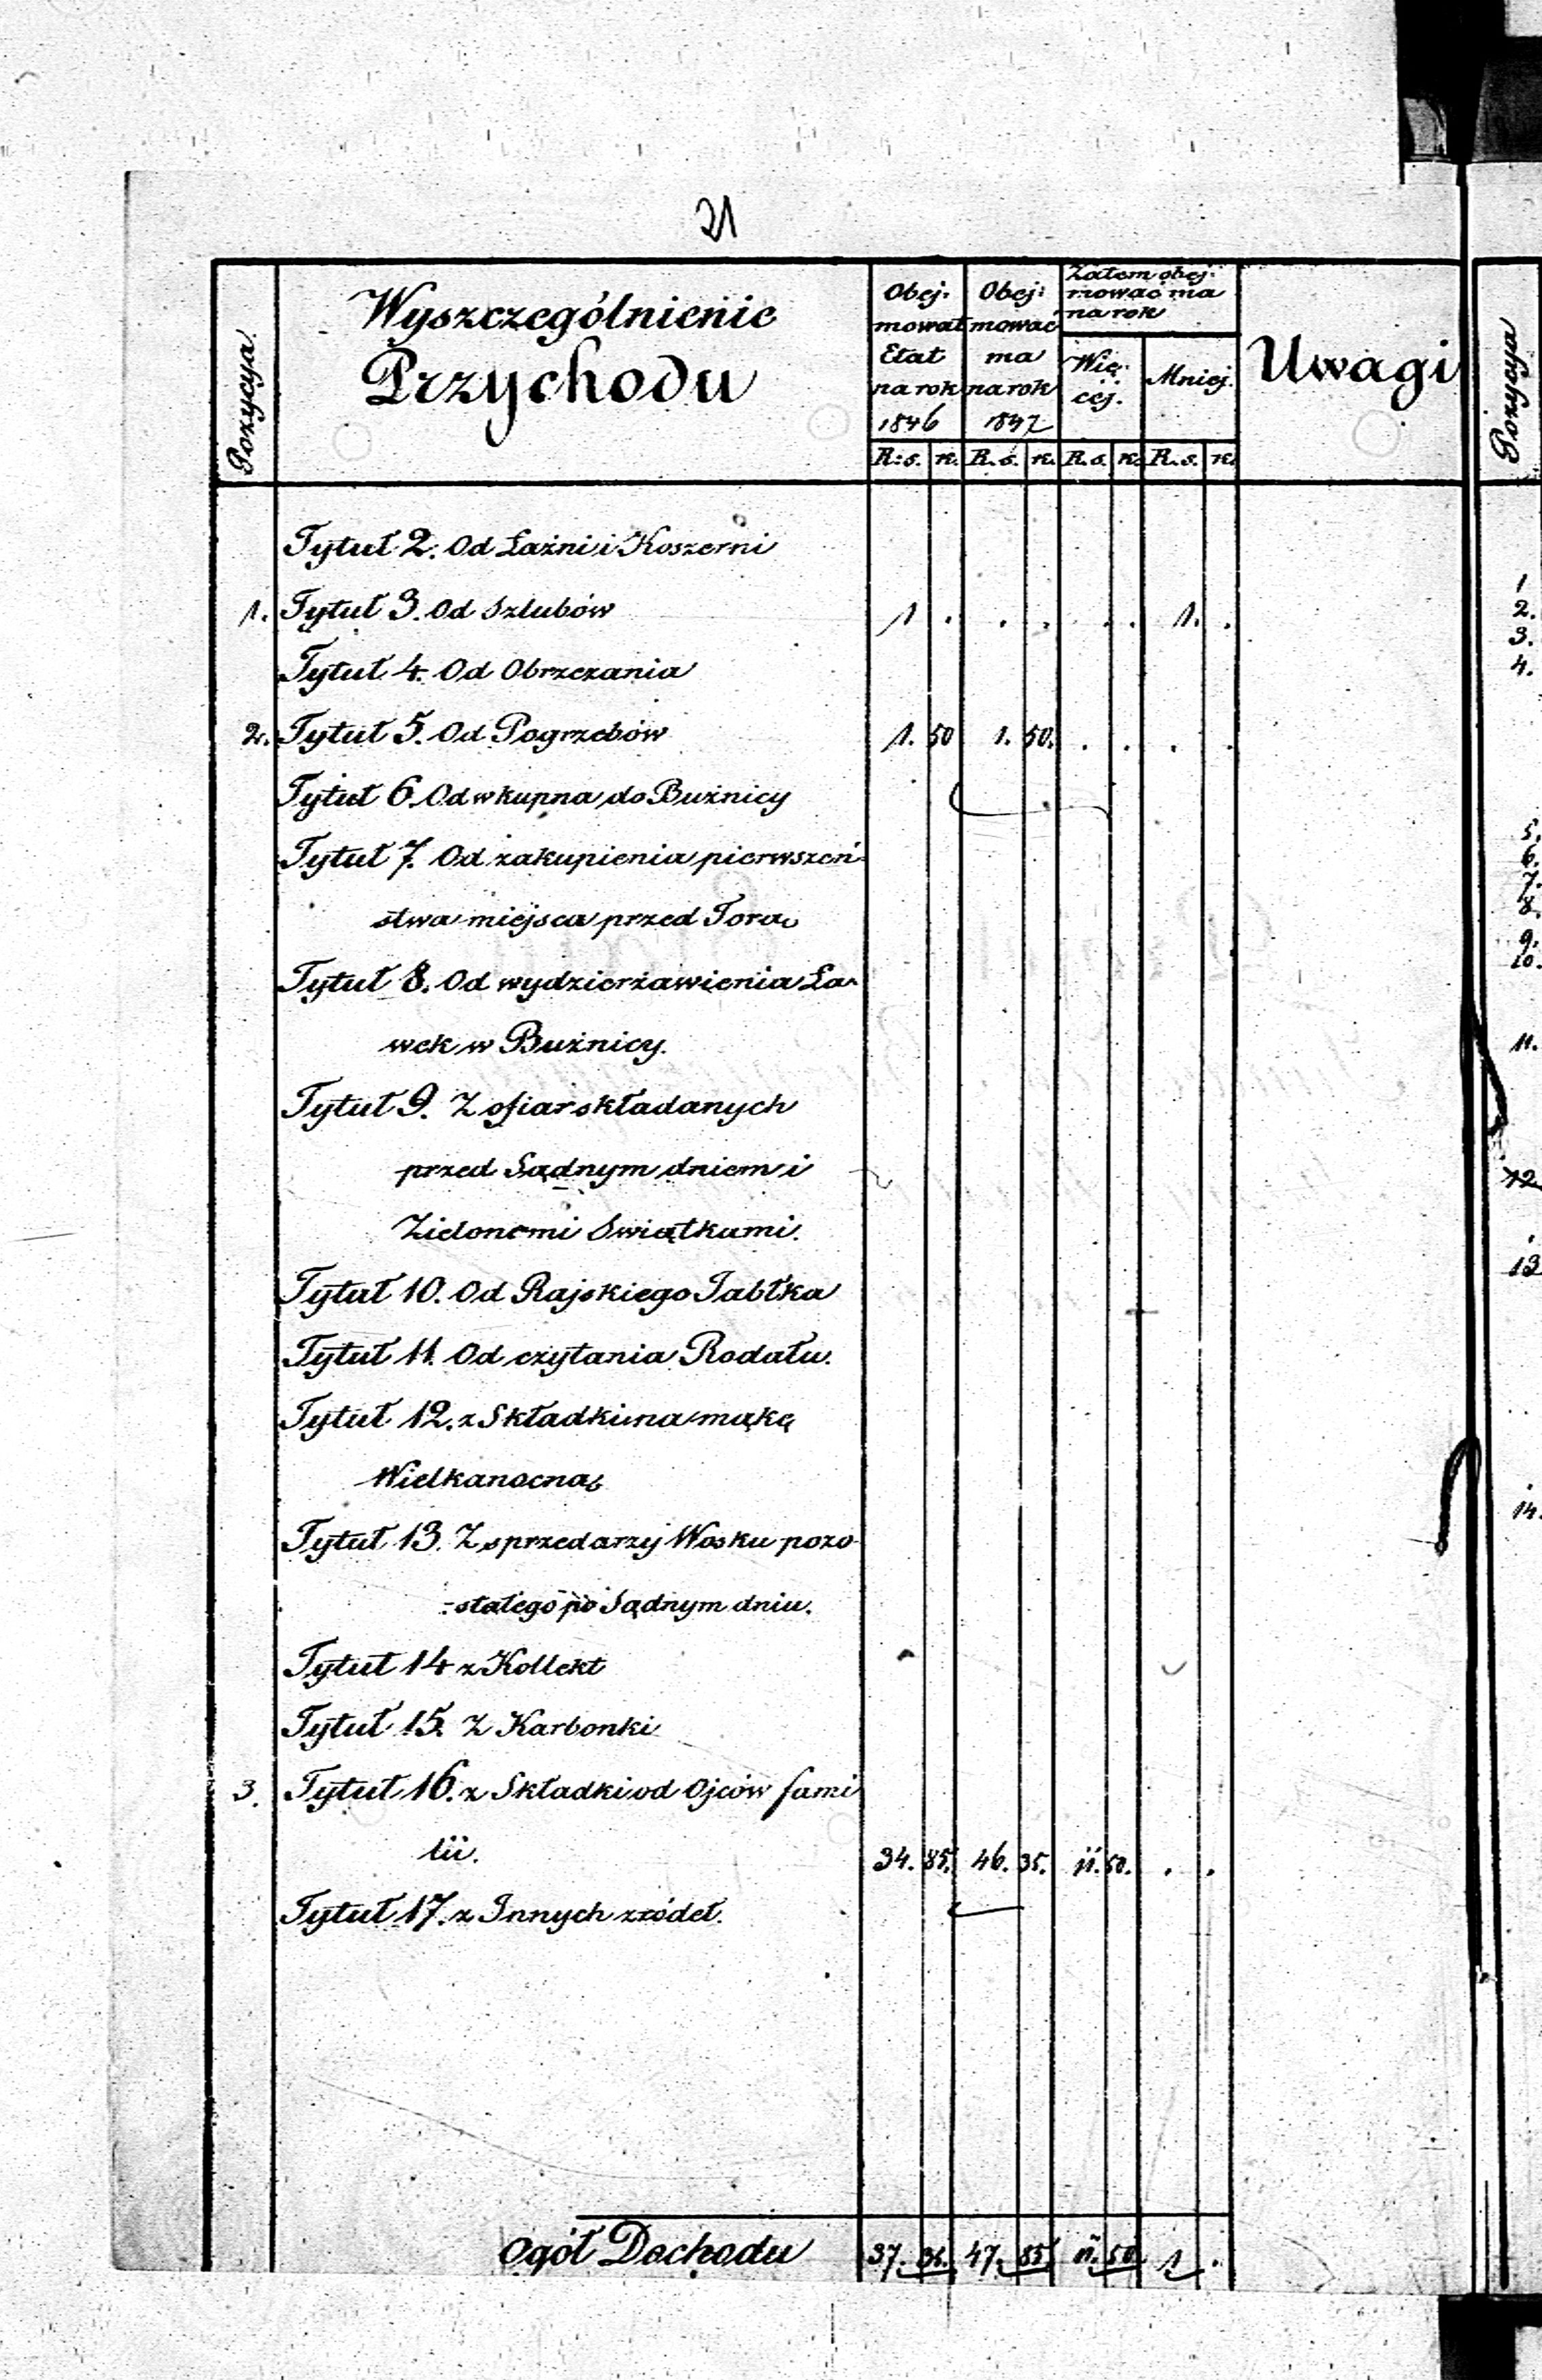 21
Pozycya
Wyszczególnienie
Przychodu
Obej:
mował
Etat
na rok
1846
Obej:
mować
ma
na rok
1847
Zatem obej:
mować ma
na rok
Wię:
cej.
Mniej.
Uwagi
Pozycya
R:s. k. R.s. k. R.s. k. R.s. k.
Tytuł 2. Od Łaźni i Koszerni
1. Tytuł 3. Od Szlubów 1 . . . . . 1. .
Tytuł 4. Od Obrzezania
2. Tytuł 5. Od Pogrzebów 1. 50 1. 50. . . . .
Tytuł 6. Od wkupna do Buźnicy
Tytuł 7. Od zakupienia pierwszeń-
stwa miejsca przed Torą
Tytuł 8. Od wydzierżawienia Ła-
wek w Buźnicy.
Tytuł 9. Z ofiar składanych
przed Sądnym dniem i
Zielonemi Swiątkami.
Tytuł 10. Od Rajskiego Jabłka
Tytuł 11. Od czytania Rodału.
Tytuł 12. z Składki na mąkę
Wielkanocną
Tytuł 13. Z sprzedarzy Wosku pozo-
-stałego po Sądnym dniu.
Tytuł 14 z Kollekt
Tytuł 15. Z Karbonki
3. Tytuł 16. z Składki od Ojców fami
lii.
34. 85. 46. 35. 11. 50. . .
Tytuł 17. z Innych zródeł.
Ogół Dochodu 37. 47. 85 11. 50 1 .
1
2.
3.
4.
5.
6.
7.
8.
9.
10.
11.
12
13
14.